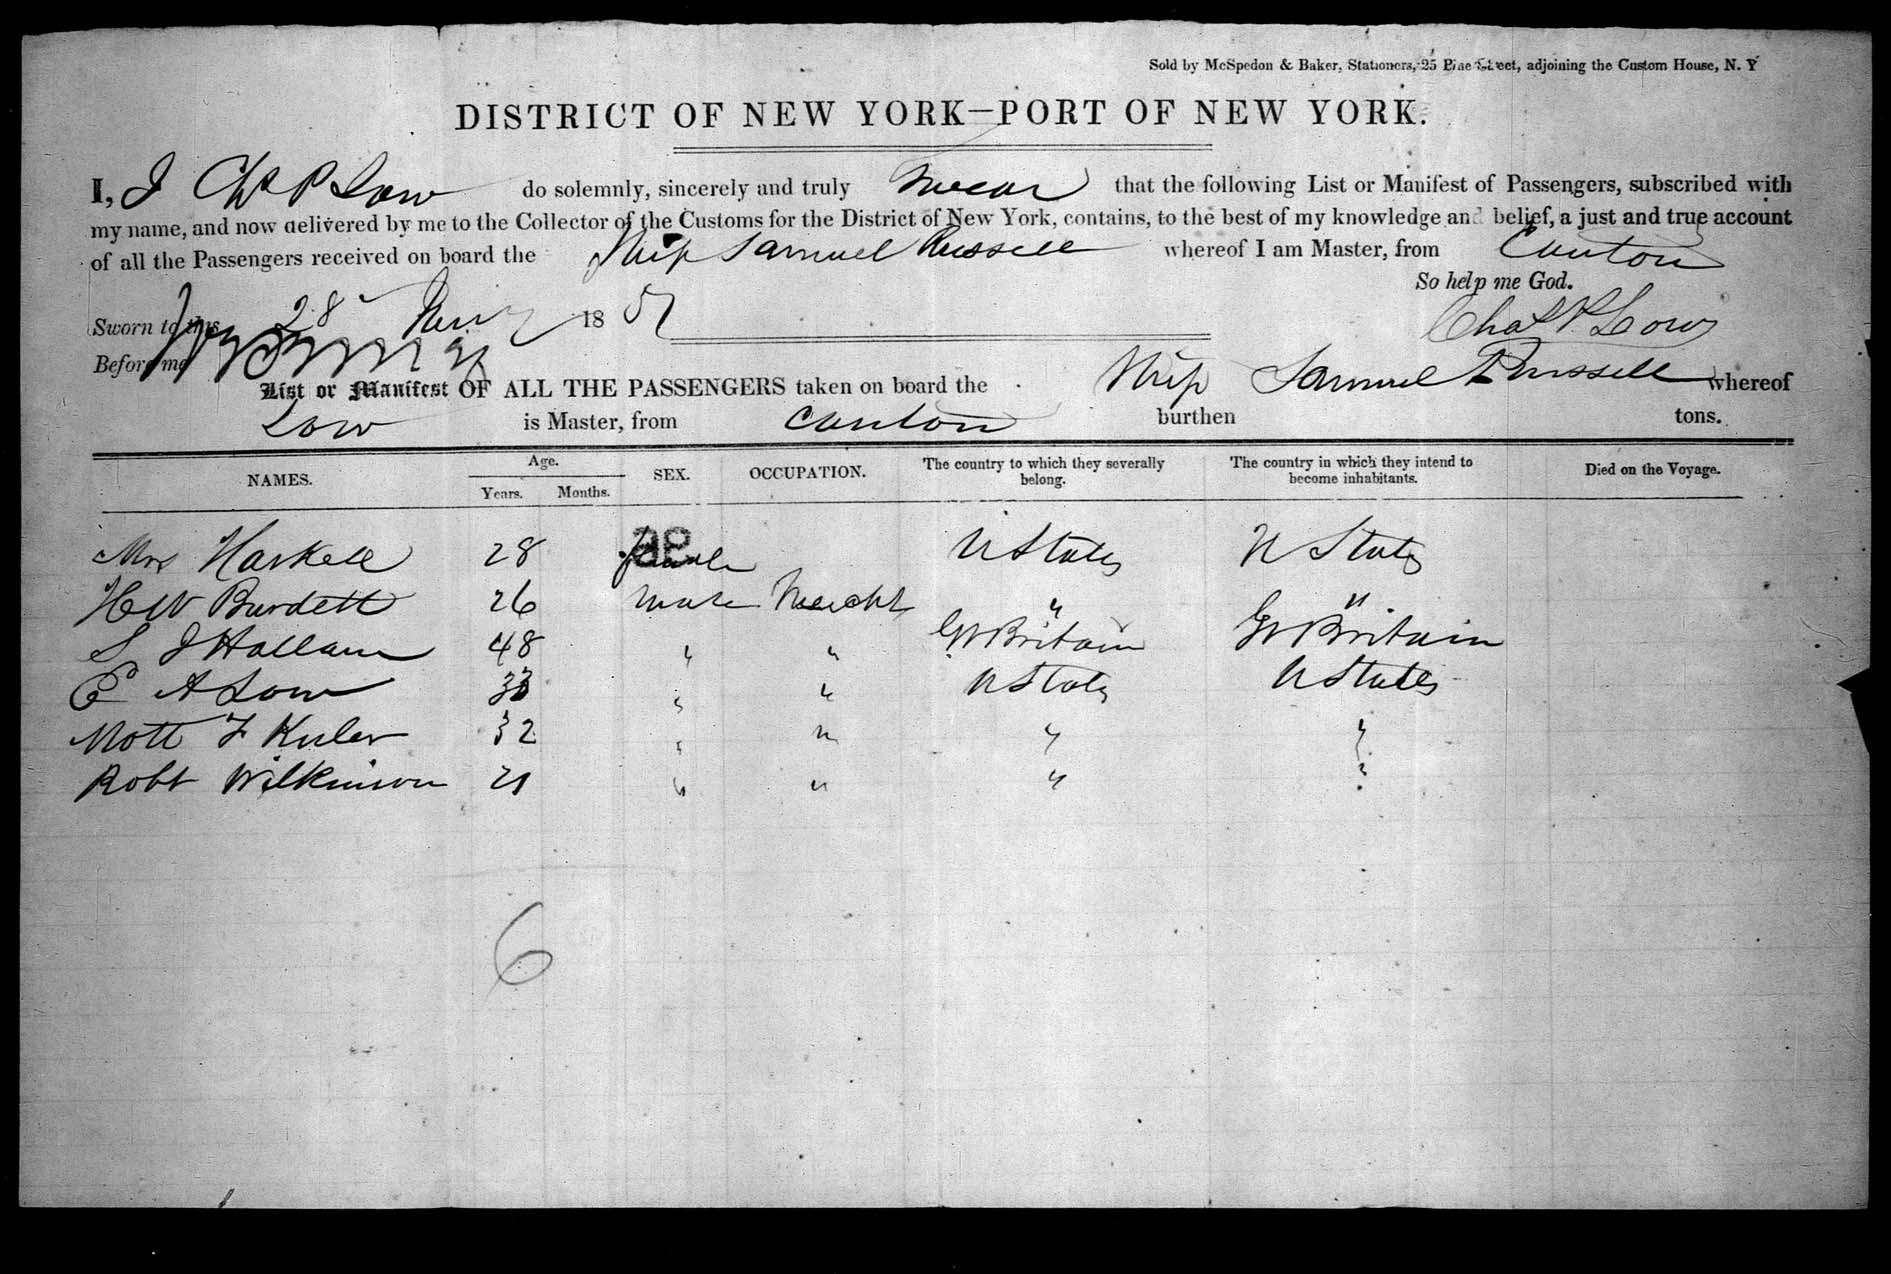 Sold by McSpedon & Baker, Stationers, 25 Pine Street, adjoining the Custom House, N. Y
DISTRICT OF NEW YORK—PORT OF NEW YORK.
I, I Chs P Low do solemnly, sincerely and truly swear that the following List or Manifest of Passengers, subscribed with
my name, and now delivered by me to the Collector of the Customs for the District of New York, contains, to the best of my knowledge and belief, a just and true account
of all the Passengers received on board the Ship Samuel Russell whereof I am Master, from Canton
So help me God.
Sworn to this 28 18 51 Chas P. Low
Before me
List or Manifest OF ALL THE PASSENGERS taken on board the Ship Samuel Russell whereof
Low is Master, from Canton burthen tons.
NAMES. Age. Years. Months. SEX. OCCUPATION. The country to which they severally belong. The country in which they intend to become inhabitants. Died on the Voyage.
Mrs Haskell 28 female U States U States
H W Burdett 26 male Mercht " "
S J Hallam 48 " " Gt Britain Gt Britain
E A Low 33 " " U States U States
Mott 32 " " " "
Robt Wilkinson 21 " " " "
6